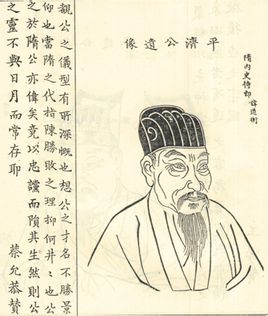 平濟公遺像
隋內史侍郎 諱道衡
觀公之儀型有所深慨也想公之才名不勝景
仰也當隋之代指陳勝敗之理抑何井々也公
之於隋公亦偉矣竟以忠讜而隕其生然則公
之靈不與日月而常存耶 蔡允恭贊